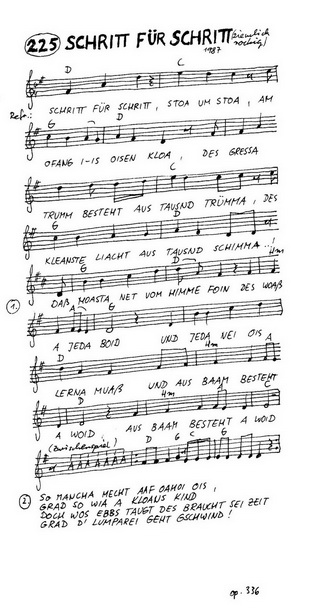 225 SCHRITT FÜR SCHRITT (ziemlich rockig)
1987
D C
Refr.: SCHRITT FÜR SCHRITT, STOA UM STOA, AM
G D
OFANG I-IS OISEN KLOA, DES GRESSA
C
TRUMM BESTEHT AUS TAUSND TRÜMMA, DES
G D
KLEANSTE LIACHT AUS TAUSND SCHIMMA...!
G D Hm
1. DAß MOASTA NET VOM HIMME FOIN DES WOAß
A G
A JEDA BOID UND JEDA NEI OIS
D Hm A
LERNA MUAß UND AUS BAAM BESTEHT
D Hm
A WOID, AUS BAAM BESTEHT A WOID
(Zwischenspiel) D G C G
2. SO MANCHA MECHT AAF OAMOI OIS,
GRAD SO WIA A KLOANS KIND
DOCH WOS EBBS TAUGT DES BRAUCHT SEI ZEIT
GRAD D' LUMPAREI GEHT GSCHWIND!
op. 336